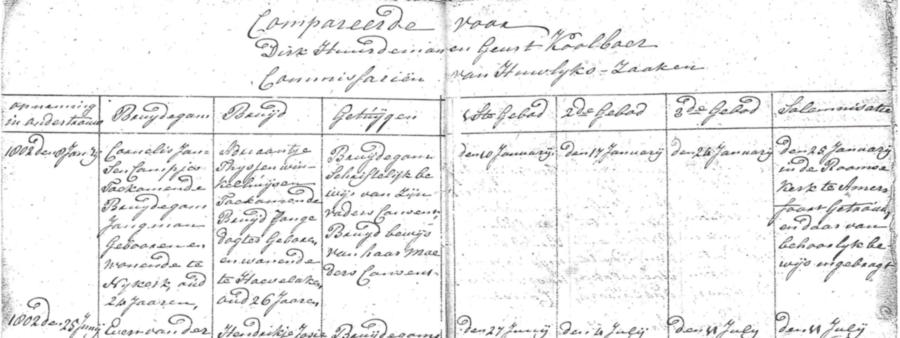 Compareerde voor
Dirk Huurdeman en Geurt Koolboer
Commissariën van Huwlyks-Zaaken
aanneming
in ondertrouw
Bruydegam
Bruyd
Getuygen
1ste Gebod
2de Gebod
3de Gebod
Solemnisatie
1802 den 8 Janry
Cornelis Jan
Sen Campjes
Toekomende
Bruydegam
Jongman
Gebooren en
wonende te
Nykerk, oud
24 Jaaren,
Buaantje
Thyssen win-
kelhuysen
Toekomende
Bruyd Jonge
dogter Gebore,
en wonende
te Hoevelaken
oud 26 Jaaren
Bruydegam
Schriftelijk be
wijs van zijn
vaders Consent
Bruyd bewijs
van haar Moe
ders Consent
den 10 Januarij
den 17 Januarij
den 24 Januarij
den 28 Januarij
in de Roomse
Kerk te Amers
foort Getrouw,
en daar van
behoorlijk be
wijs ingebragt
1802 den 25 Junij
Evert van der
Hendrikje
Bruydegams
den 27 Junij
den 4 Julij
den 11 Julij
den 11 Julij